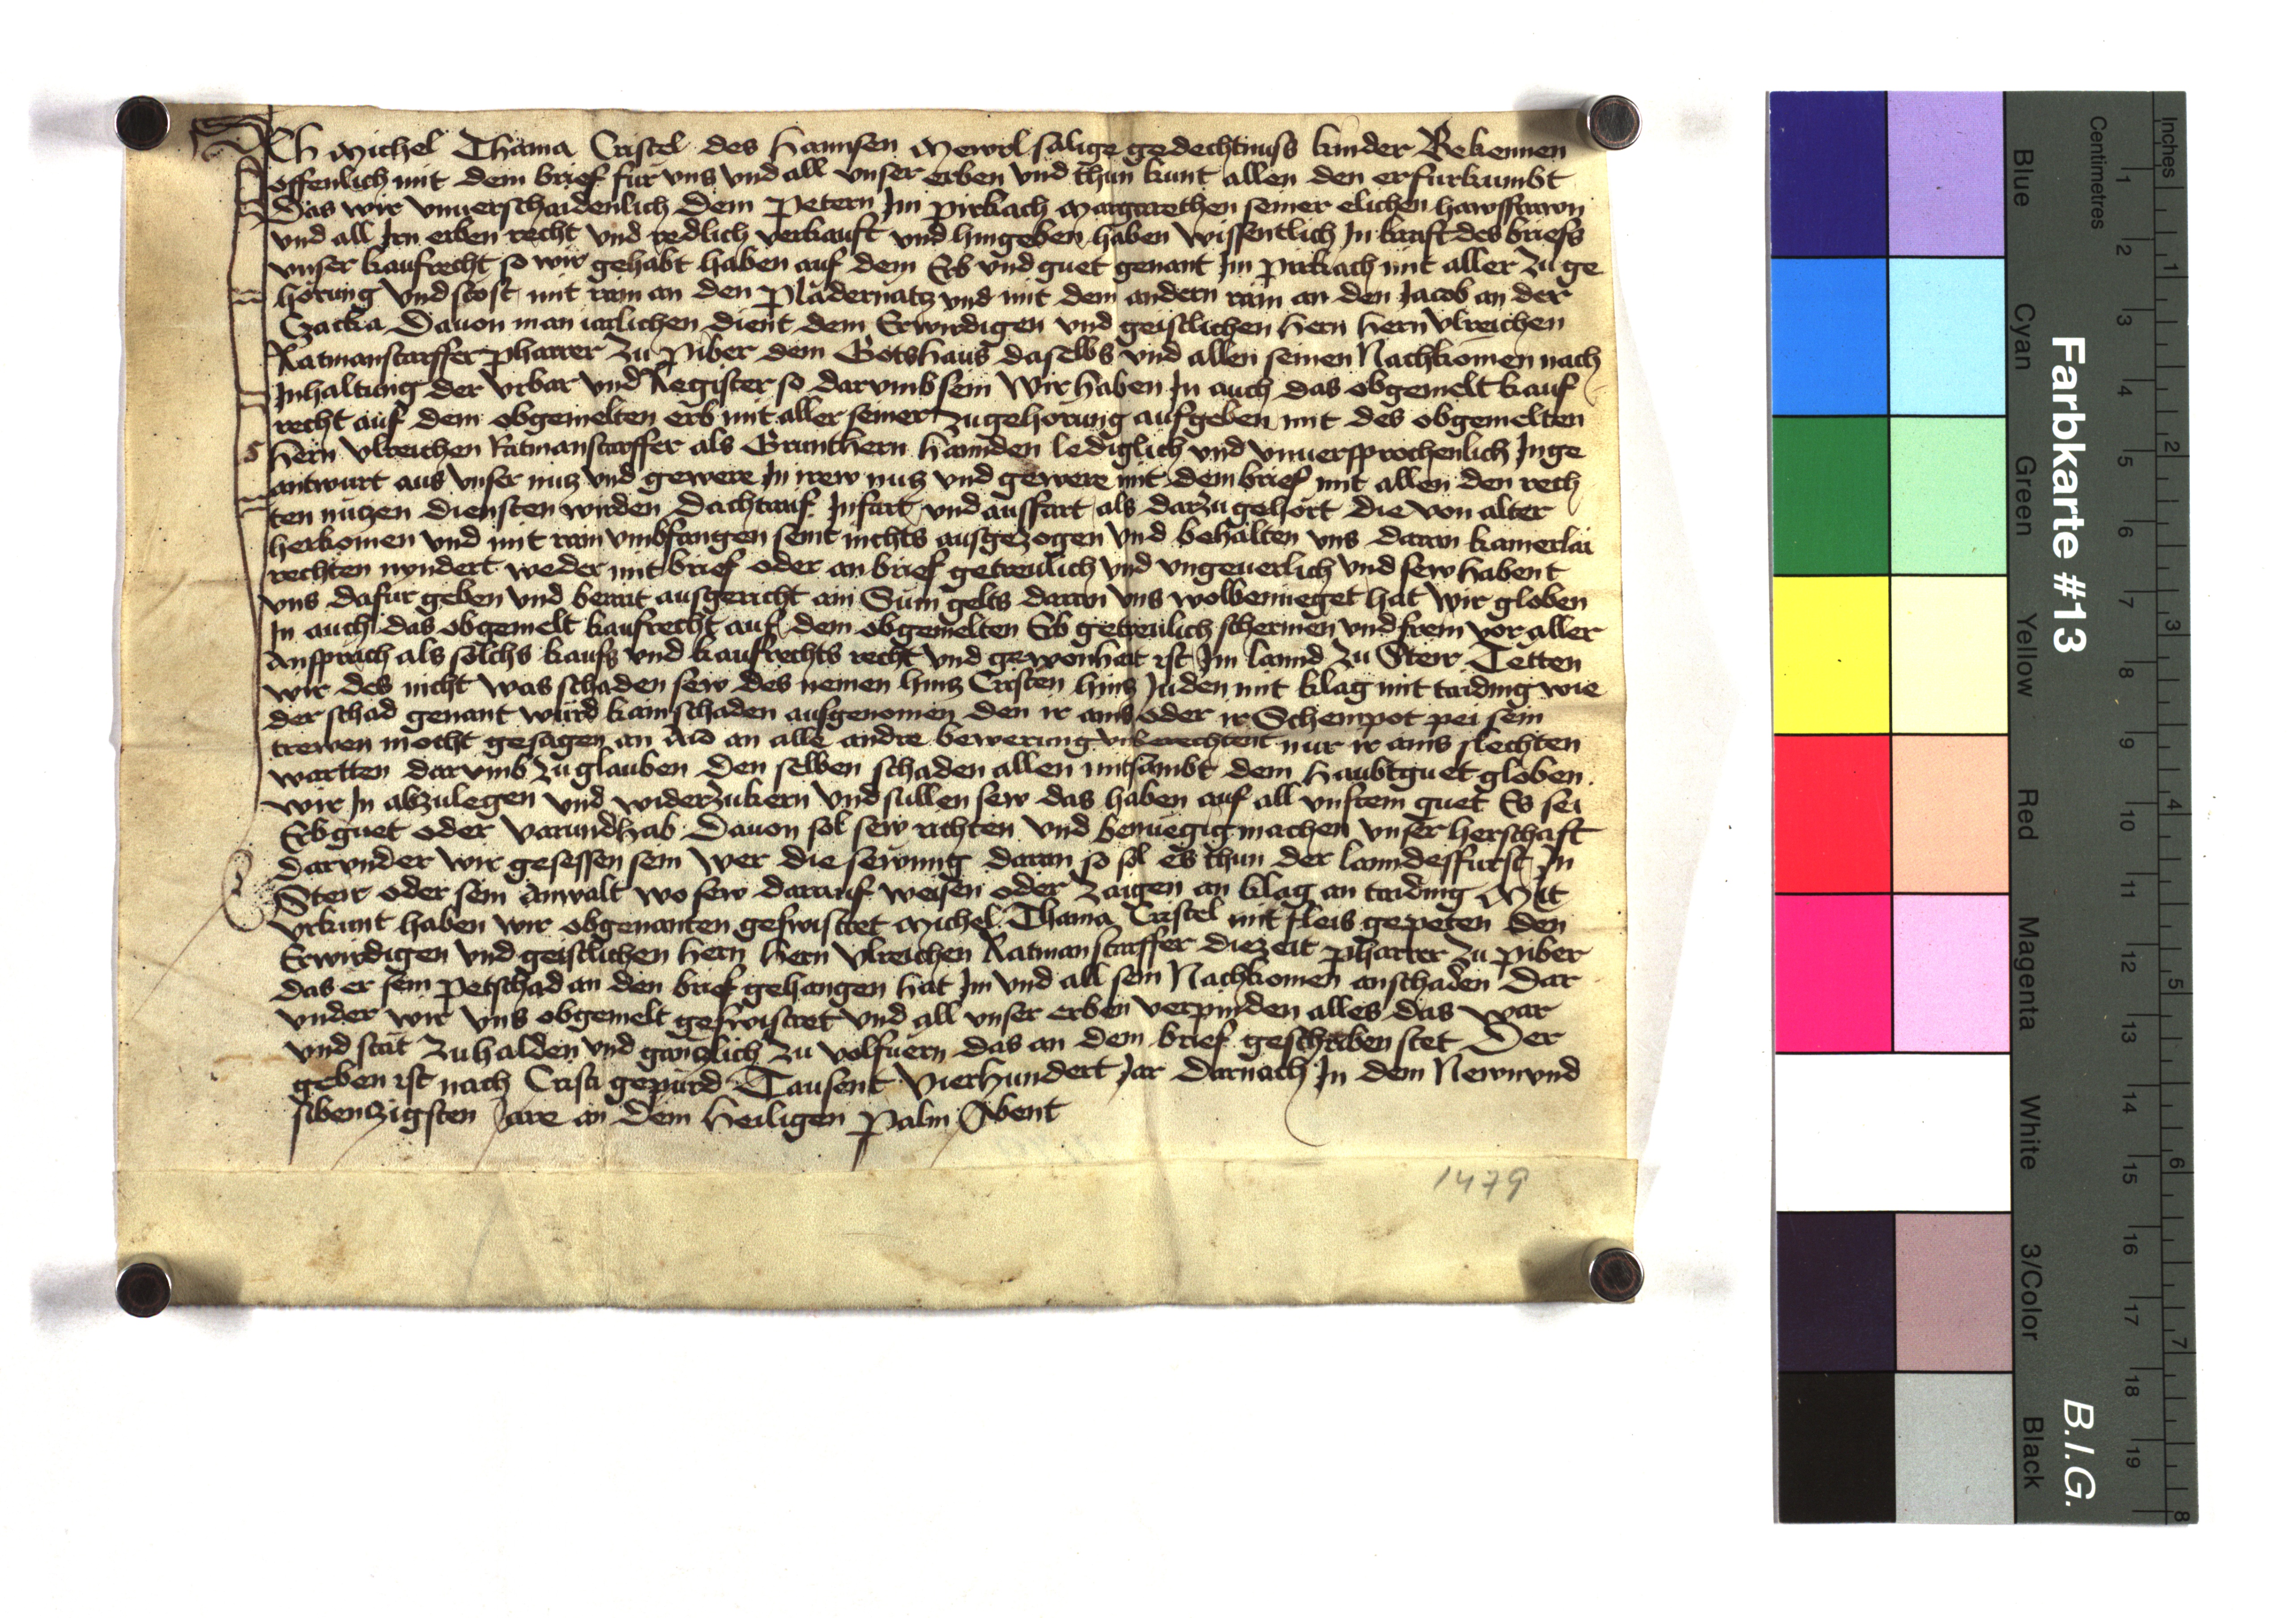 Ich Michel Thama Cristel des Hannsen Mewrl salige gedechtnuss kinder Bekennen
offenlich mit dem brief fur vns vnd all vnser erben vnd thun kunt allen den er furkumbt
Das wir vnuerschaidenlich dem Petern Im Pirkach Margarethen seiner elichen hawsfrawn
vnd all Irn erben recht vnd redlich verkauft vnd hingeben haben wissentlich In kraft des briefs
vnser kaufrecht so wir gehabt haben auf dem Erb vnd guet genant Im Pirkach mit aller zu ge
horung vnd stost mit rain an den Pladernatz vnd mit dem andern rain an den Jacob an der
Czacka Dauon man iarlichen dient dem Erwirdigen vnd geistlichen Hern Hern Vlreichen
Ratmanstarffer Pharrer zu Piber dem Gotshaus daselbs vnd allen seinen Nachkomen nach
Inhaltung der vrbar vnd Register so darvmb sein Wir haben In auch das obgemelt kauf
recht auf dem obgemelten erb mit aller seiner zugehorung aufgeben mit des obgemelten
Hern Vlreichen Ratmanstarffer als Grunthern Hannden lediglich vnd vnuersprochenlich Inge
antwurt aus vnser nutz vnd gewere In irew nutz vnd gewere mit dem brief mit allen den rech
ten nutzen diensten wirden Dachtrauf Infart vnd ausfart als darzu gehort die von alter
herkomen vnd mit rain vmbfangen seint nichts ausgezogen vnd behalten vns daran kainerlai
rechten nyndert weder mit brief oder an brief getreulich vnd vngeuerlich vnd sew habent
vns dafur geben vnd berait ausgericht ain Sum gelts daran vns wolbenueget hat Wir globen
In auch das obgemelt kaufrecht auf dem obgemelten Erb getreulich schermen vnd frein vor aller
Ansprach als solchs kaufs vnd kaufrechts recht vnd gewonhait ist Im lannd zu Steir Tetten
wir des nicht was schaden sew des nemen hintz Cristen hintz Juden mit klag mit taiding wie
der schad genant wurd kain schaden ausgenomen den ir ains oder ir Schempot pei sein
trewen mocht gesagen an Aid an alle andre bewerung vnberechtent nur ir ains slechten
wartten darvmb zu glauben Den selben schaden allen mitsambt dem Haubtguet globen
wir In abzulegen vnd widerzukern vnd sullen sew das haben auf all vnsrem guet Es sei
Erbguet oder varundhab Dauon sol sew richten vnd benuegig machen vnser herschaft
darvnder wir gesessen sein Wer die sewmig daran so sol es thun der lanndesfurst In
Steir oder sein Anwalt wo sew darauf weisen oder zaigen an klag an taiding Mit
vrkunt haben wir obgenanten geswistret Michel Thama Cristel mit fleis gepeten den
Erwirdigen vnd geistlichen Hern Hern Vlreichen Ratmanstarffer die zeit Pharrer zu Piber
das er sein Petschad an den brief gehangen hat Im vnd all sein Nachkomen anschaden Dar
vnder wir vns obgemelt geswistret vnd all vnser erben verpinden alles das war
vnd stat zu halden vnd gantzlich zu volfuern das an dem brief geschriben stet Der
geben ist nach Cristi gepurd Tausent Vierhundert Jar Darnach In dem Newnvnd
sibentzigsten Jare an dem Heiligen Palm Abent
1479
Farbkarte #13
B.I.G.
Centimetres
Inches
Blue
Cyan
Green
Yellow
Red
Magenta
White
3/Color
Black
1 2 3 4 5 6 7 8 9 10 11 12 13 14 15 16 17 18 19
1 2 3 4 5 6 7 8